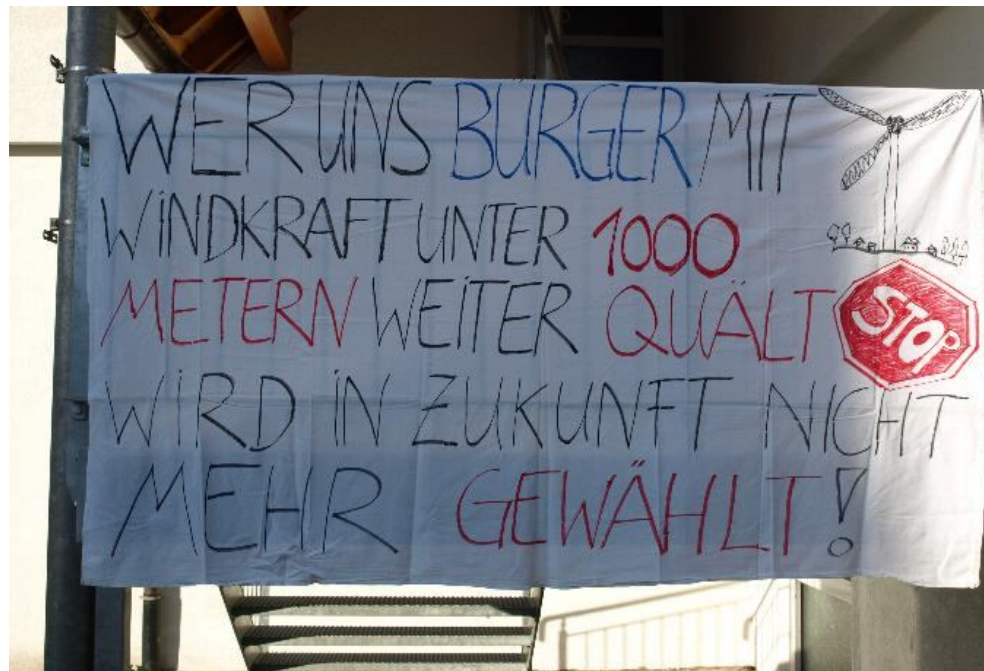 WER UNS BÜRGER MIT
WINDKRAFT UNTER 1000
METERN WEITER QUÄLT
STOP
WIRD IN ZUKUNFT NICHT
MEHR GEWÄHLT!